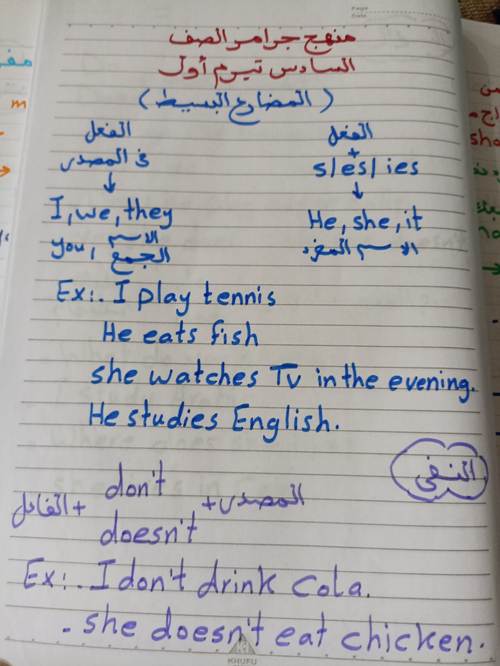 Page
Date
منهج جرامر الصف
السادس تيرم أول
( المضارع البسيط )
الفعل
فى المصدر
↓
I, we, they
you, الاسم الجمع
الفعل
+
s/es/ies
↓
He, she, it
الاسم المفرد
Ex:. I play tennis
He eats fish
she watches Tv in the evening.
He studies English.
النفى
الفاعل + don't + المصدر
doesn't
Ex:. I don't drink cola.
. she doesn't eat chicken.
KHUFU